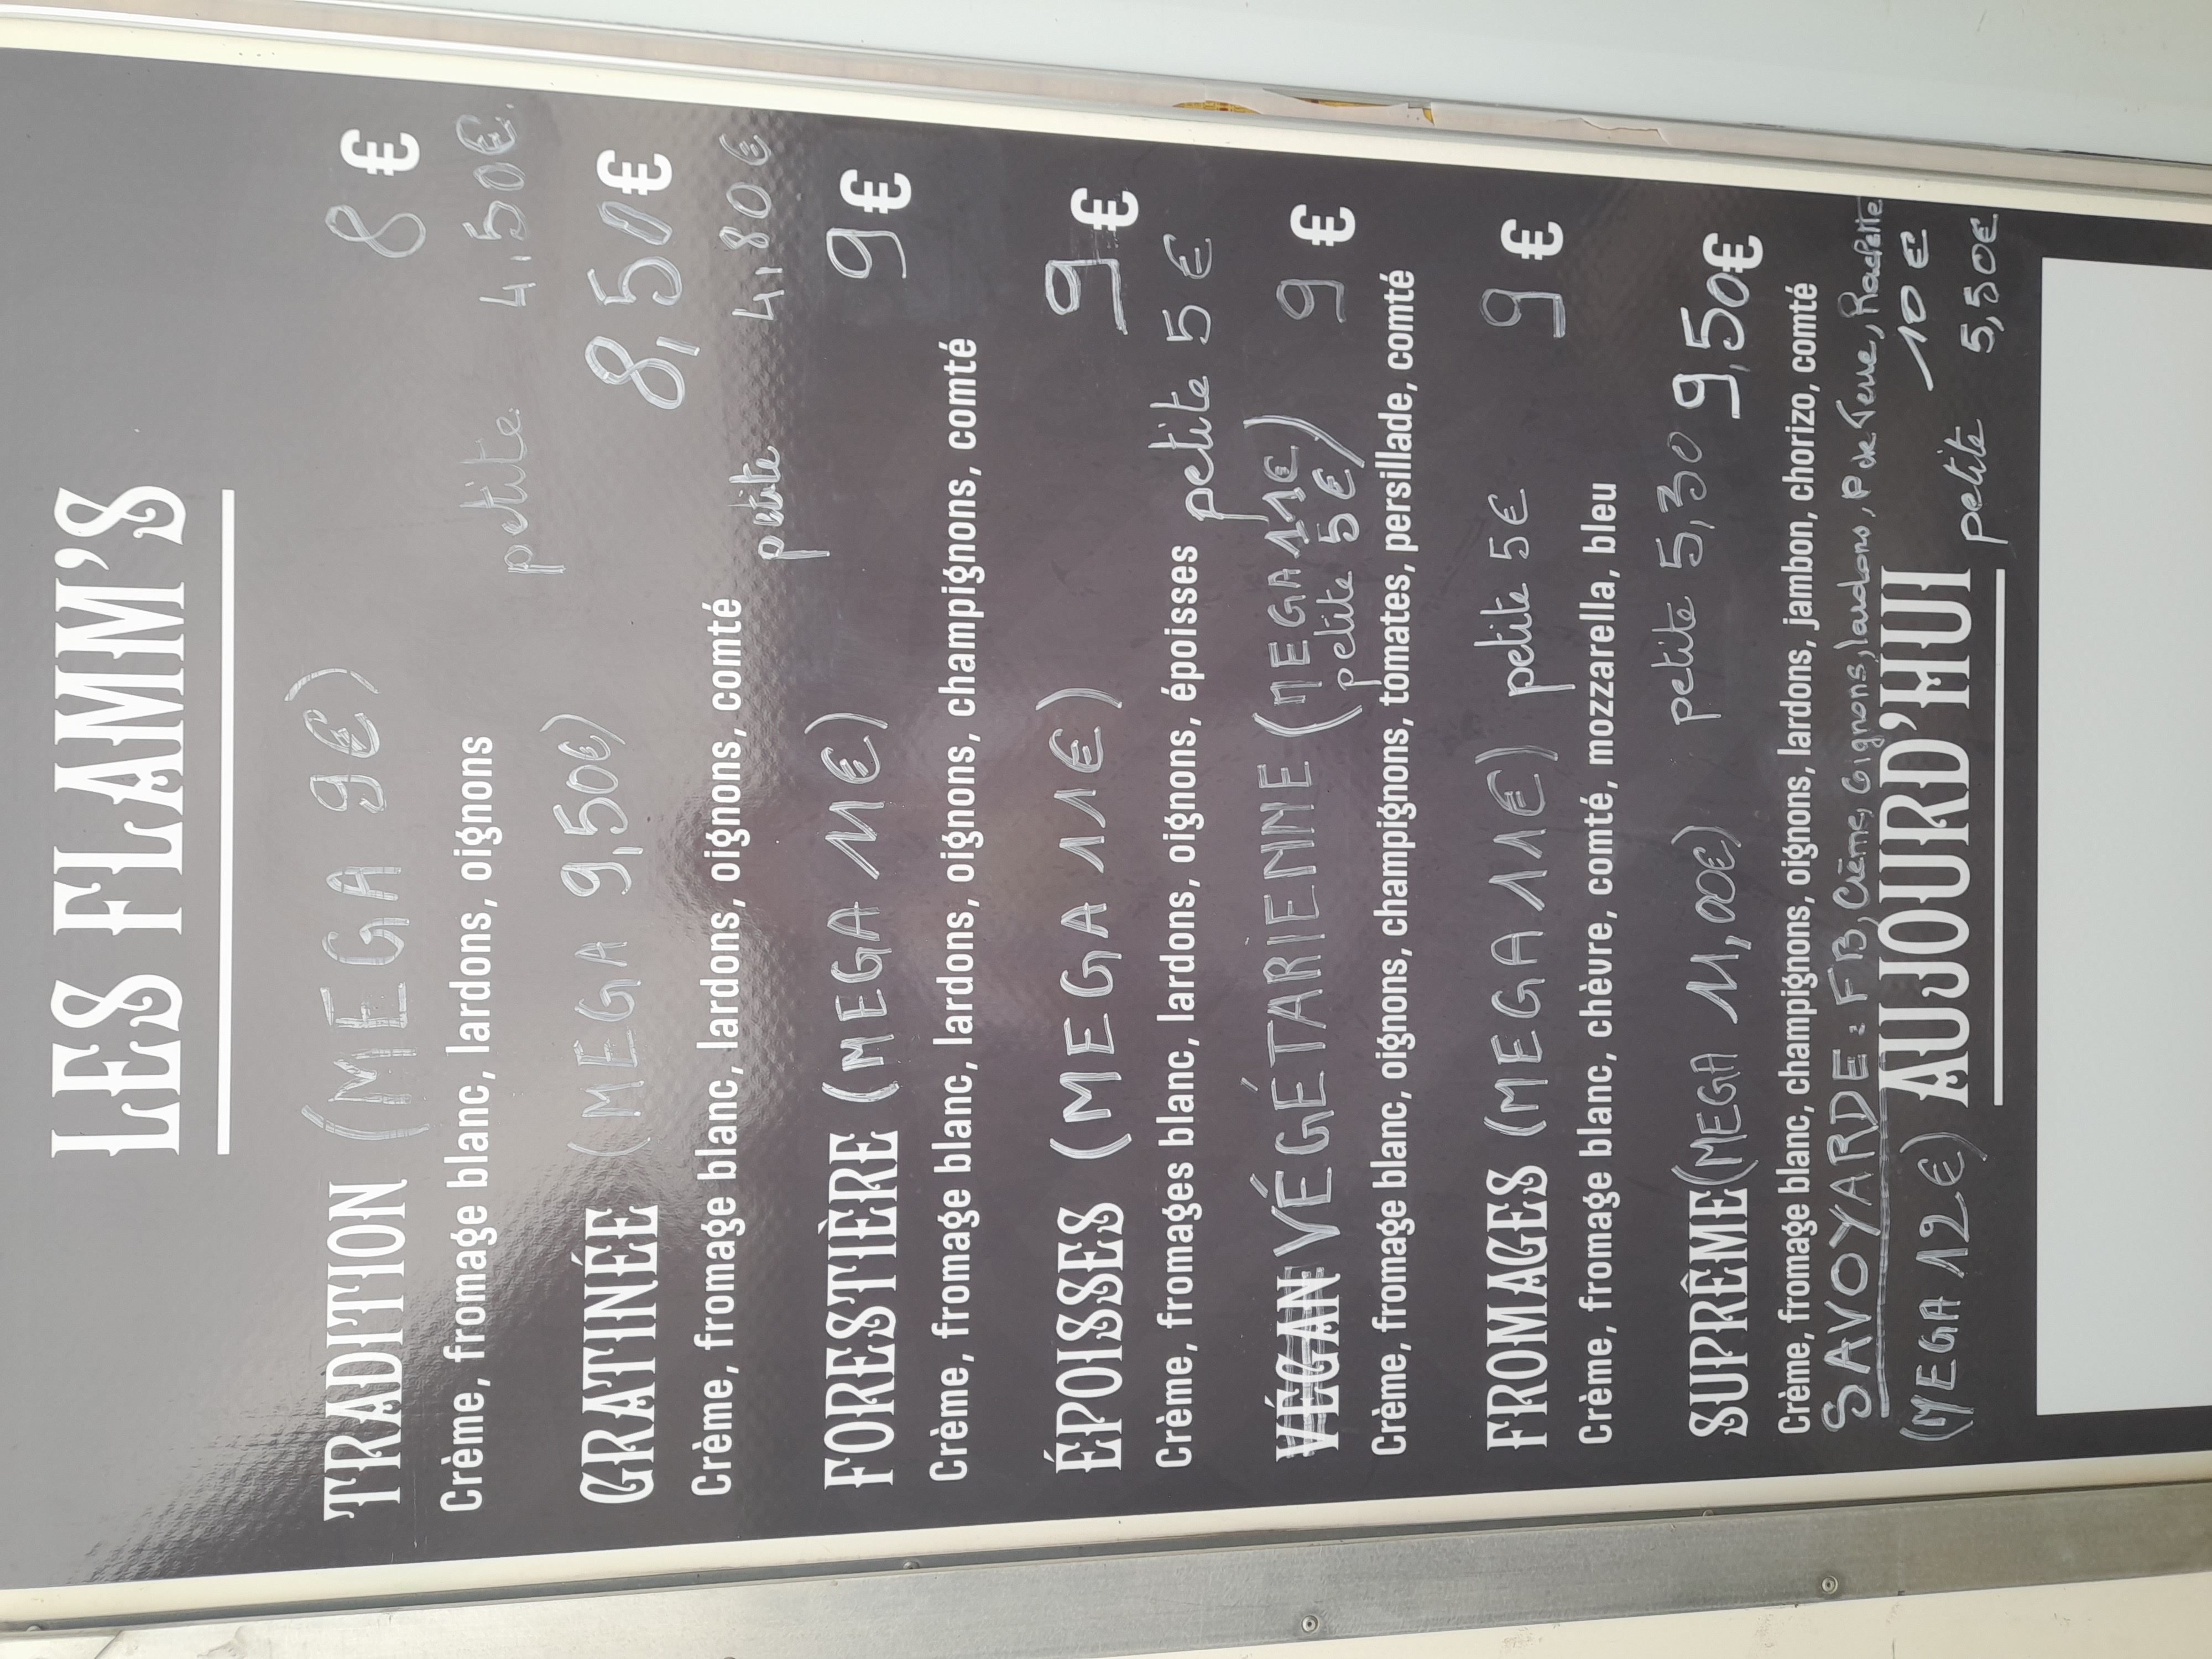 LES FLAMM'S
TRADITION (MEGA 9€) 8 €
Crème, fromage blanc, lardons, oignons petite 4,50€
GRATINÉE (MEGA 9,50€) 8,50€
Crème, fromage blanc, lardons, oignons, comté petite 4,80€
FORESTIÈRE (MEGA 11€) 9 €
Crème, fromage blanc, lardons, oignons, champignons, comté
ÉPOISSES (MEGA 11€) 9 €
Crème, fromages blanc, lardons, oignons, époisses petite 5€
VÉGAN VÉGÉTARIENNE (MEGA 11€) 9 €
petite 5€)
Crème, fromage blanc, oignons, champignons, tomates, persillade, comté
FROMAGES (MEGA 11€) petite 5€ 9 €
Crème, fromage blanc, chèvre, comté, mozzarella, bleu
SUPRÊME (MEGA 11,00€) petite 5,30 9,50€
Crème, fromage blanc, champignons, oignons, lardons, jambon, chorizo, comté
SAVOYARDE : FB, Crème, Oignons, lardons, P de Terre, Raclette
(MEGA 12€) AUJOURD'HUI 10€
petite 5,50€